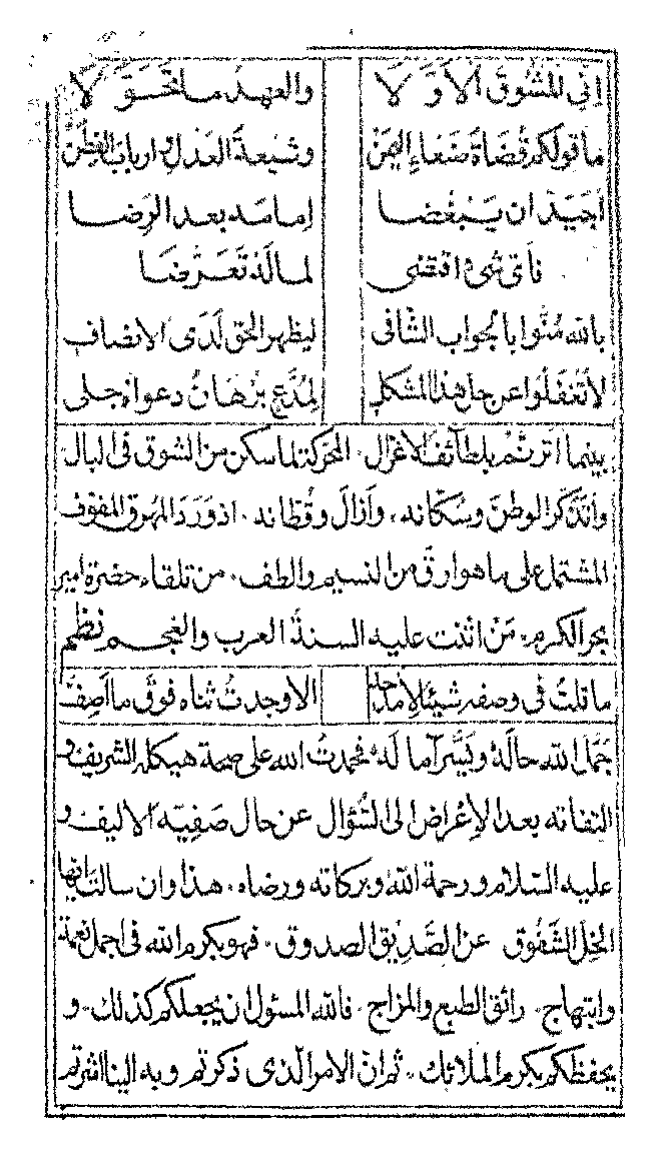 إني للشوق الأولا والعهد ما تحققلا
ما قولكم قضاة صنعاء اليمن وشيعة العدل وأرباب الفطن
أجيد ان يبغضا إمامه بعد الرضا
نأى شيء اقتضى لما له تعرضا
بالله منوا بالجواب الشافى ليظهر الحق لدى الانصاف
لا تغفلوا عن حل هذا المشكل لمدع برهان دعواه جلى
بينما اترنم بلطائف الاغزال. المحركة لما سكن من الشوق فى البال
واتذكر الوطن وسكانه. وآزال وقطانه. اذ ورد المهرق المفوف
المشتمل على ما هو ارق من النسيم والطف. من تلقاء حضرة امير
بحر الكرم. من اثنت عليه السنة العرب والعجم نظم
ما قلت فى وصفه شيئا لأمدحه الا وجدت ثناه فوق ما اصف
جمل الله حاله ويسر آماله فحمدت الله على صحة هيكله الشريف و
التفاته بعد الإعراض الى السؤال عن حال صفيه الاليف و
عليه السلام ورحمة الله وبركاته ورضاه. هذا وان سالت ايها
الخل الشفوق عن الصديق الصدوق. فهو بكرم الله فى اجمل نعمة
وابتهاج. رائق الطبع والمزاج. فالله المسئول ان يجعلكم كذلك. و
يحفظكم بكرم الملائك. ثم ان الامر الذى ذكرتم وبه الينا اشرتم